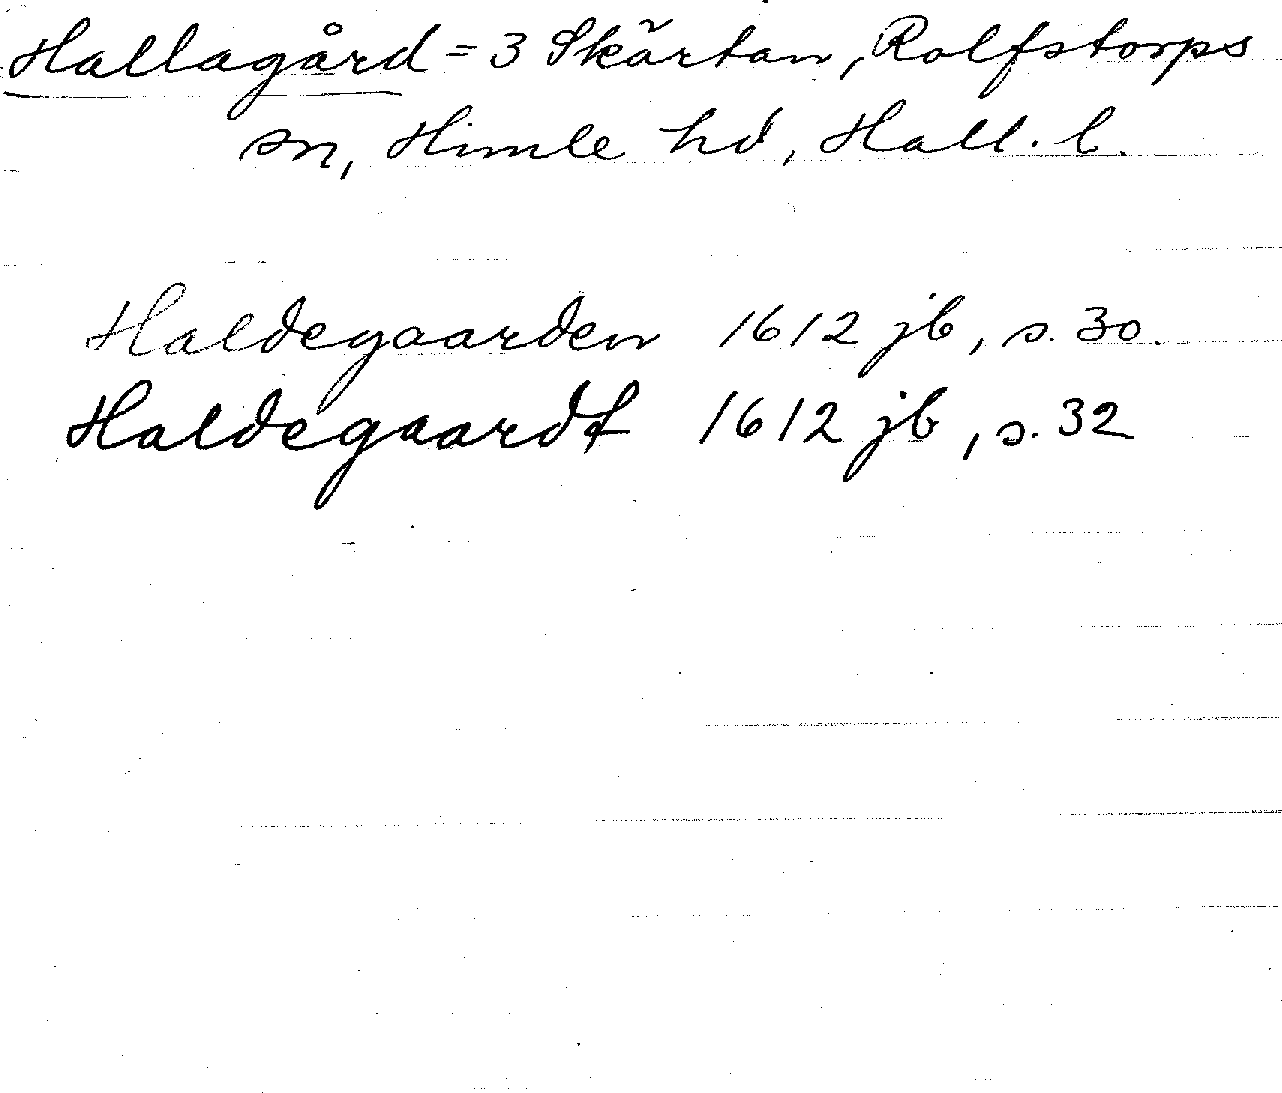 Hallagård = 3 Skärtan, Rolfstorps
sn, Himle hd, Hall. l.
Haldegaarden 1612 jb, s. 30.
Haldegaardt 1612 jb, s. 32